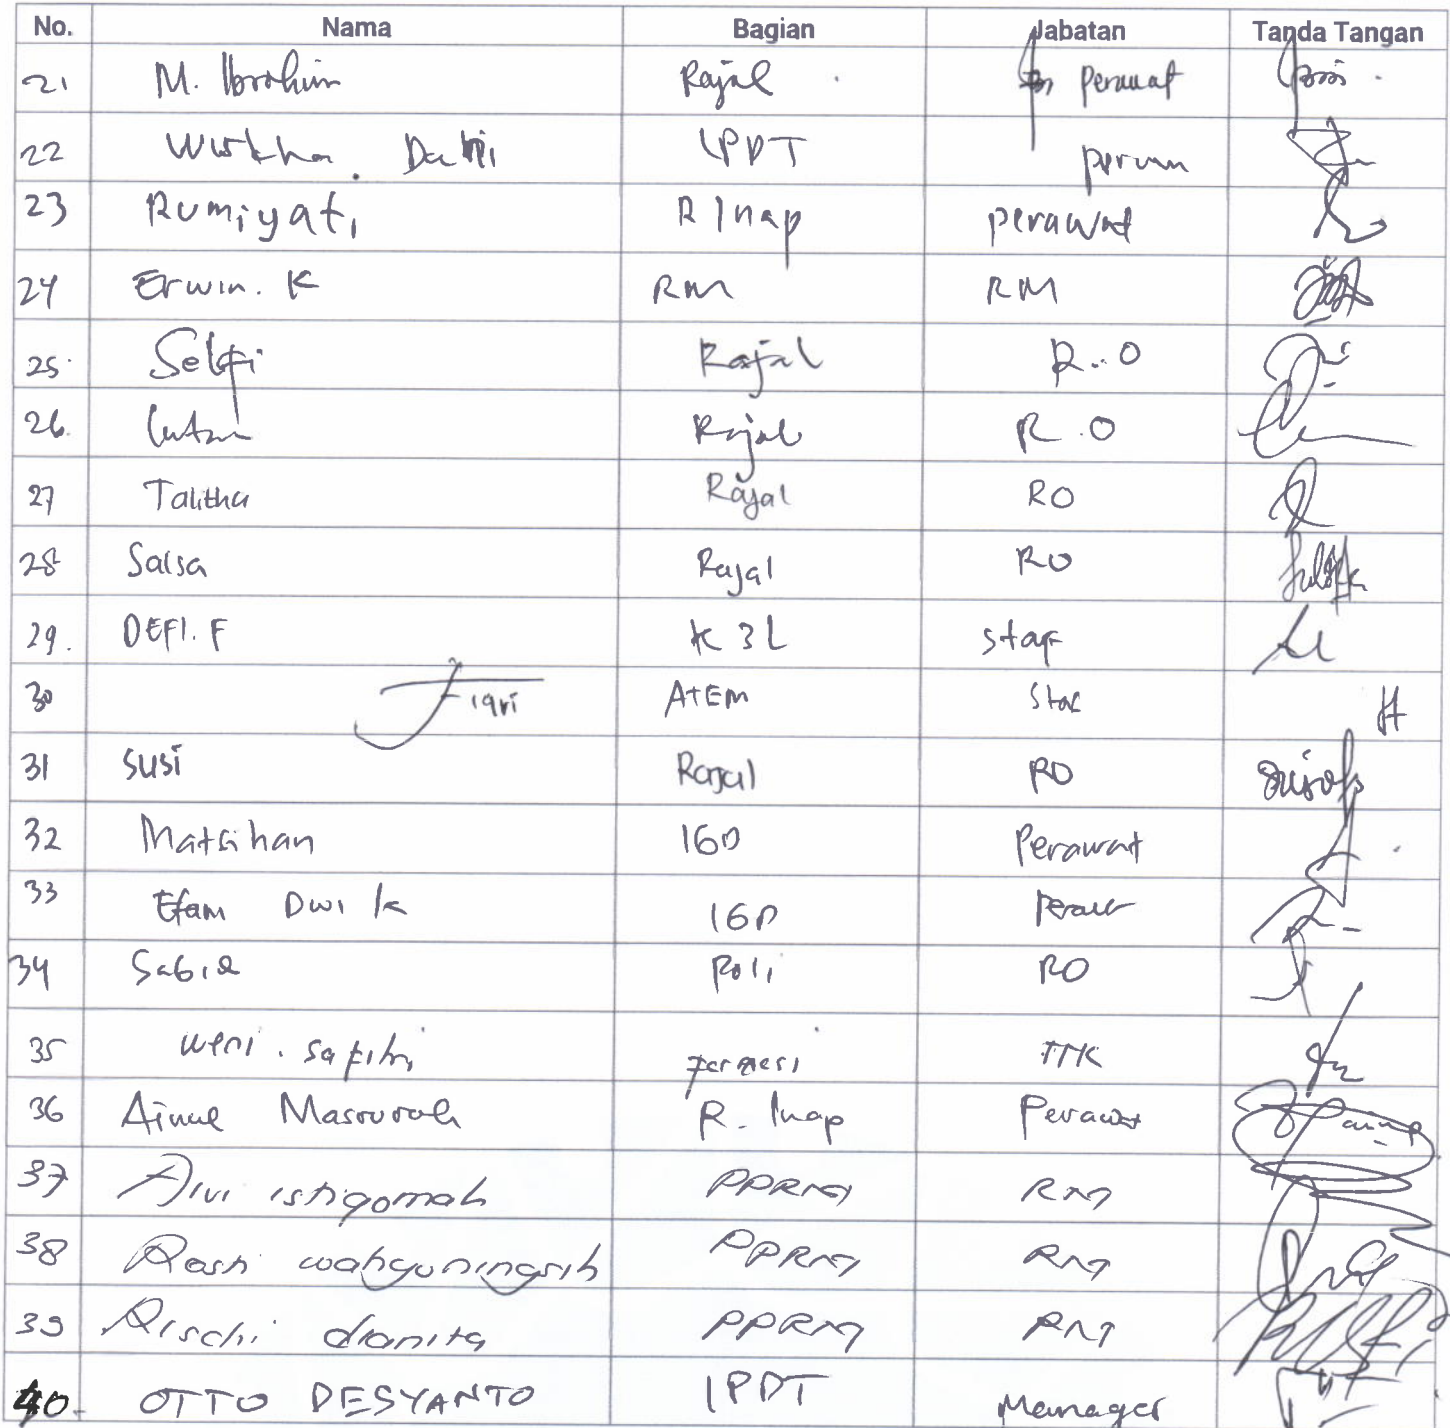 No. Nama Bagian Jabatan Tanda Tangan
21 M. Ibrohim Rajal Perawat
22 Dahi IPDT
23 Rumiyati R Inap perawat
24 Erwin. K RM RM
25. Selfi Rajal R..O
26. Intan Rajal R.O
27 Talitha Rajal RO
28 Salsa Rajal RO
29. DEFI. F K3L staf
30 Fiqri ATEM Staf
31 Susi Rajal RO
32 IGD Perawat
33 Efam Dwi K IGD
34 Poli RO
35 Weni. Safitri farmasi TTK
36 R. Inap Perawat
37 Alvi istiqomah PPRM RM
38 Rasti wahyuningsih PPRM RM
39 Rischi dianita PPRM RM
40. OTTO DESYANTO IPDT Manager